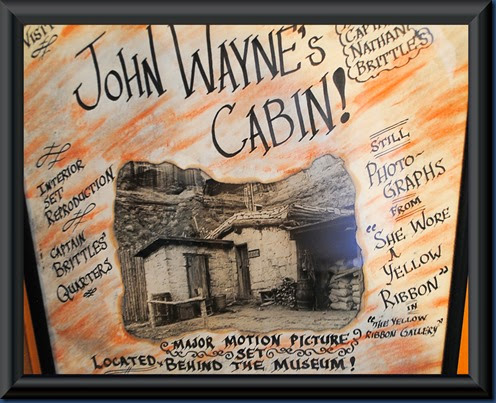 VISIT
JOHN WAYNE'S
CABIN!
CAPTAIN
NATHAN
BRITTLE'S
INTERIOR
SET
REPRODUCTION
"CAPTAIN
BRITTLES'
QUARTERS
STILL
PHOTO-
GRAPHS
FROM
"SHE WORE
A
YELLOW
RIBBON"
IN
"THE YELLOW
RIBBON GALLERY"
"MAJOR MOTION PICTURE"
SET
LOCATED BEHIND THE MUSEUM!